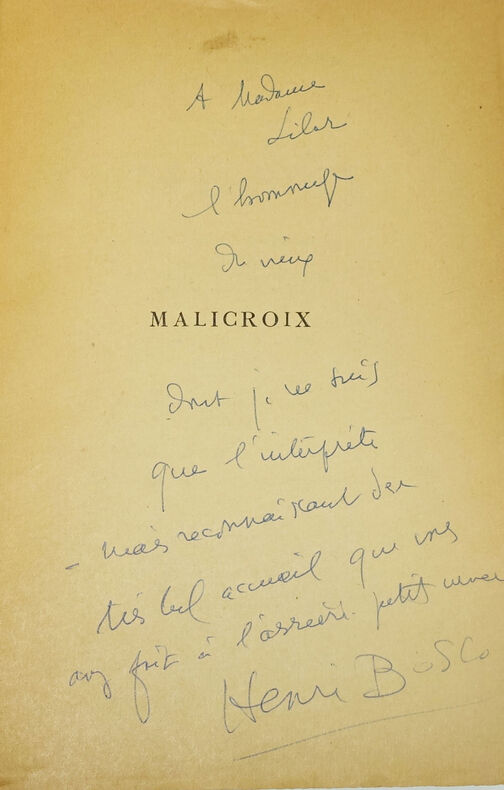 A Madame
Lilar
l'hommage
du vieux
MALICROIX
dont je ne suis
que l'interprète
- mais reconnaissant du
très bel accueil que vous
avez fait à petit neveu
Henri Bosco